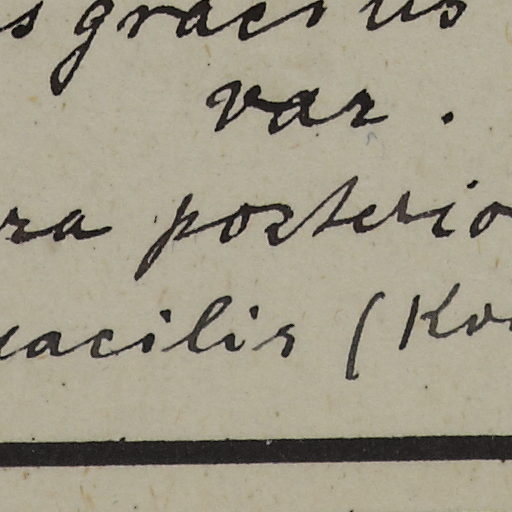 s gracilis
var.
ra posterio
racilis (Kr